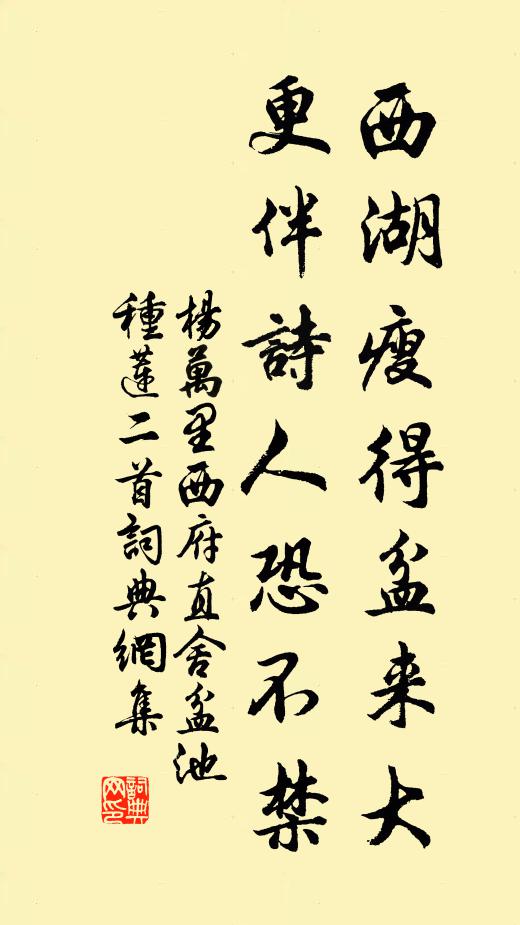 西湖瘦得盆来大
更伴詩人恐不禁
楊萬里西府直舍盆池
種蓮二首詞典網集
詞典
网印